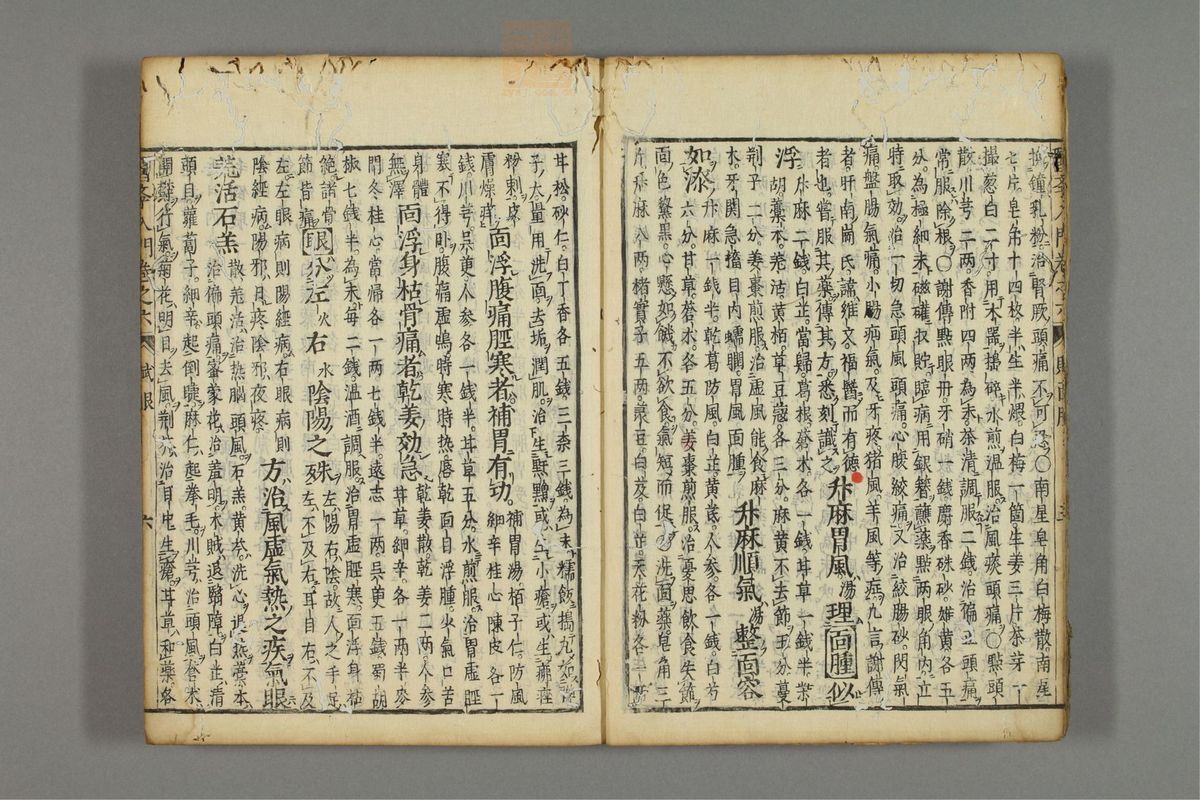 七片皂角十四枚半生半煨白梅一箇生姜三片茶芽一
撮葱白二寸用木器搗碎水煎溫服治風痰頭痛○點頭
散川芎二兩香附四兩為末茶清調服二錢治偏正頭痛
常服除根○謝傳點眼丹牙硝一錢麝香硃砂雄黃各五
分為極細末磁礶收貯臨病用銀簪蘸藥點兩眼角內立
特取効治一切急頭風頭痛心腹絞痛又治絞腸砂閃氣
痛盤腸氣痛小腸疝氣及牙疼猪風羊風等症九言謝傳
者肝南崗氏諱維文福醫而有德
者也嘗服其藥傳其方悉刻識之
升麻胃風湯理面腫似
浮
升麻二錢白芷當歸葛根蒼朮各一錢甘草一錢半柴
胡藁本羌活黃栢草豆蔻各三分麻黃不去節五分蔓
荊子二分姜棗煎服治虛風能食麻
木牙關急搐目內蠕瞤胃風面腫
升麻順氣湯整面容
如漆
升麻一錢半乾葛防風白芷黃芪人參各一錢白芍
六分甘草蒼朮各五分姜棗煎服治憂思飲食失節
面色黧黑心懸如餓不欲食氣短而促○洗面藥皂角三
斤升麻八兩楮實子五兩菉豆白及白芷天花粉各二兩
甘松砂仁白丁香各五錢三柰三錢為末糯飯搗丸如彈
子大量用洗面去垢潤肌治生䵟黯或生小瘡或生痱痤
粉刺皮
膚燥痒
面浮腹痛脛寒者補胃有功
補胃湯栢子仁防風
細辛桂心陳皮各一
錢川芎吳茰人參各一錢甘草五分水煎服治胃虛脛
寒不得臥腹痛虛鳴時寒時熱唇乾面目浮腫少氣口苦
身體
無澤
面浮身枯骨痛者乾姜効急
乾姜散乾姜二兩人參
甘草細辛各一兩半麥
門冬桂心當歸各一兩七錢半遠志一兩吳茰五錢蜀胡
椒七錢半為末每二錢溫酒調服治胃虛脛寒面浮身枯
絕諸骨
節皆痛
眼分左火右水陰陽之殊
左陽右陰故人之手足
左不及右耳目右不及
左左眼病則陽經病右眼病則
陰經病陽邪日疼陰邪夜疼
方治風虛氣熱之疾氣眼
羌活石羔
散羌活治熱腦頭風石羔黃芩洗心退熱藁本
治偏頭痛密蒙花治羞明木賊退翳障白芷清
頭目蘿蔔子細辛起倒睫麻仁起拳毛川芎治頭風蒼朮
開鬱行氣菊花明目去風荊芥治目中生瘡甘草和藥各
醫學入門卷之六
拭眼
六